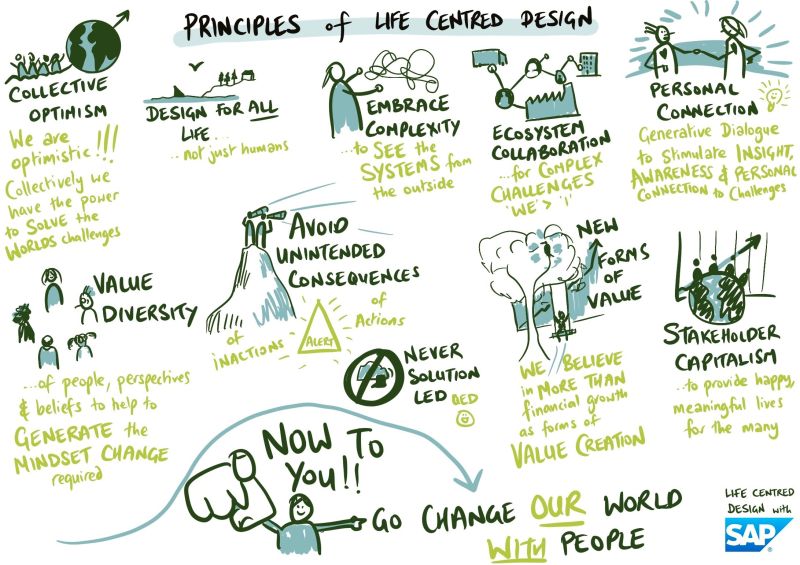 PRINCIPLES of LIFE CENTRED DESIGN
COLLECTIVE
OPTIMISM
We are
optimistic!!!
Collectively we
have the power
to SOLVE the
WORLDS challenges
DESIGN FOR ALL
LIFE...
...not just humans
EMBRACE
COMPLEXITY
...to SEE the
SYSTEMS from
the outside
ECOSYSTEM
COLLABORATION
...for COMPLEX
CHALLENGES
'WE' > 'I'
PERSONAL
CONNECTION
Generative Dialogue
to stimulate INSIGHT,
AWARENESS & PERSONAL
CONNECTION to Challenges
VALUE
DIVERSITY
...of people, perspectives
& beliefs to help to
GENERATE the
MINDSET CHANGE
required
AVOID
UNINTENDED
CONSEQUENCES
of
INACTIONS
ALERT
of
Actions
NEVER
SOLUTION
LED
NEW
FORMS
OF
VALUE
WE BELIEVE
in MORE THAN
financial growth
as forms of
VALUE CREATION
STAKEHOLDER
CAPITALISM
...to provide happy,
meaningful lives
for the many
NOW TO
YOU!!
GO CHANGE OUR WORLD
WITH PEOPLE
LIFE CENTRED
DESIGN with
SAP